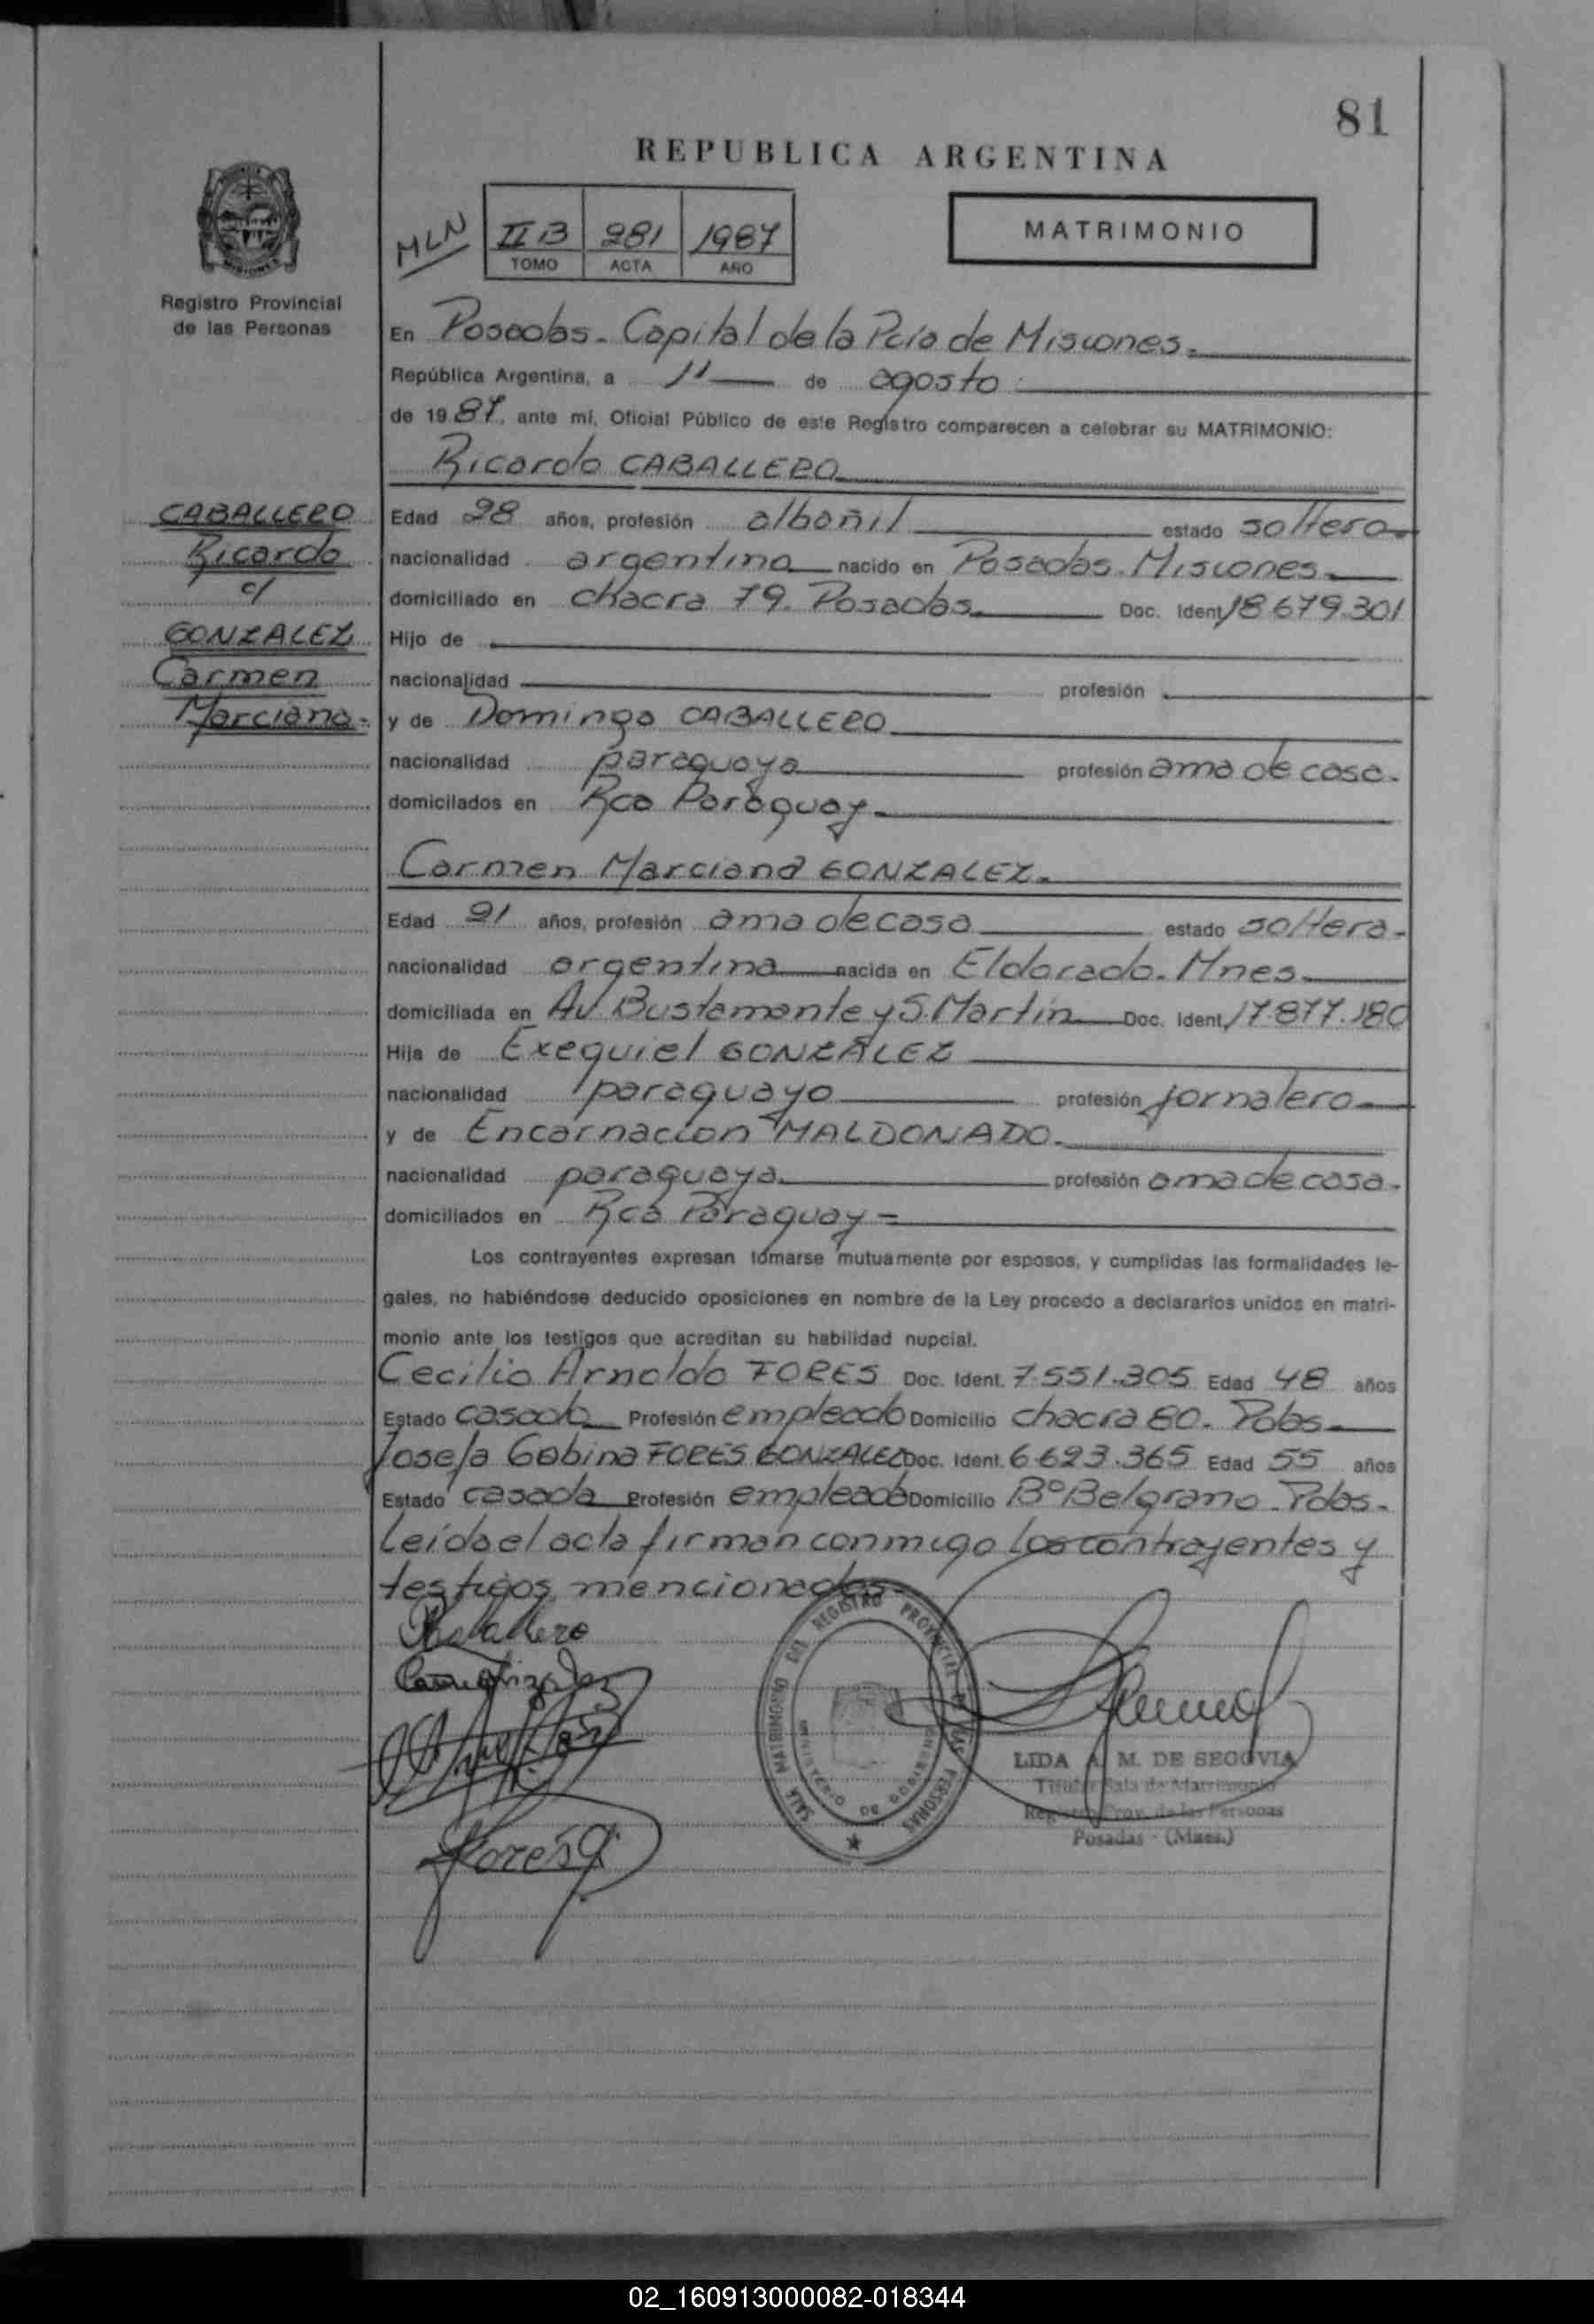 81
REPUBLICA ARGENTINA
MLN
II B 281 1987
TOMO ACTA AÑO
MATRIMONIO
MISIONES
Registro Provincial
de las Personas
En Posadas - Capital de la Pcia de Misiones.
República Argentina, a 11 de agosto
de 1987, ante mí, Oficial Público de este Registro comparecen a celebrar su MATRIMONIO:
Ricardo CABALLERO
CABALLERO
Ricardo
c/
GONZALEZ
Carmen
Marciana.-
Edad 28 años, profesión albañil estado soltero
nacionalidad argentino nacido en Posadas. Misiones
domiciliado en chacra 79. Posadas. Doc. Ident 18.679.301
Hijo de
nacionalidad profesión
y de Dominga CABALLERO
nacionalidad paraguaya profesión ama de casa.
domicilados en Rca Paraguay
Carmen Marciana GONZALEZ.
Edad 21 años, profesión ama de casa estado soltera.
nacionalidad argentina nacida en Eldorado. Mnes
domiciliada en Av Bustamante y S. Martin Doc. Ident, 17.877.180
Hija de Exequiel GONZALEZ
nacionalidad paraguayo profesión jornalero
y de Encarnacion MALDONADO.
nacionalidad paraguaya. profesión ama de casa.
domiciliados en Rca Paraguay
Los contrayentes expresan tomarse mutuamente por esposos, y cumplidas las formalidades le-
gales, no habiéndose deducido oposiciones en nombre de la Ley procedo a declararlos unidos en matri-
monio ante los testigos que acreditan su habilidad nupcial.
Cecilio Arnoldo FORES Doc. Ident. 7.551.305 Edad 48 años
Estado casado Profesión empleado Domicilio chacra 80. Pdas
Josefa Gabina FORES GONZALEZ Doc. Ident. 6.623.365 Edad 55 años
Estado casada Profesión empleada Domicilio Bº Belgrano. Pdas.
Leída el acta firman conmigo los contrayentes y
testigos mencionados.
Caballero
SALA MATRIMONIO DEL REGISTRO PROVINCIAL DE LAS PERSONAS
MINISTERIO DE GOBIERNO
LIDA A. M. DE SEGOVIA
Titular Sala de Matrimonio
Registro Prov. de las Personas
Posadas - (Mnes.)
Fores G.
02_160913000082-018344